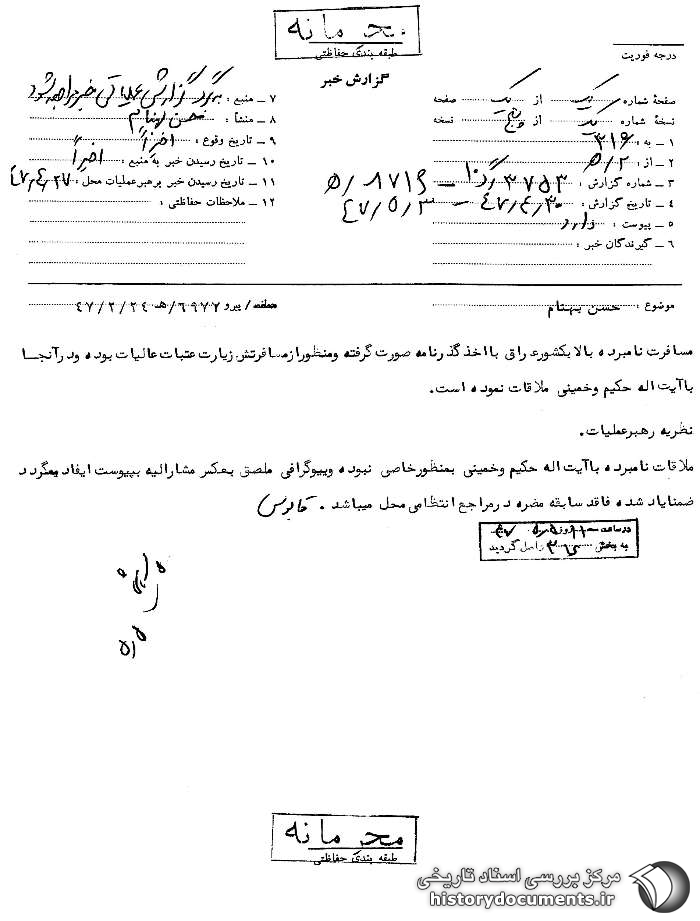 محرمانه
طبقه بندی حفاظتی
درجه فوریت
گزارش خبر
صفحهٔ شماره یک از یک صفحه
نسخهٔ شماره یک از پنج نسخه
۱ ـ به : ۳۱۶
۲ ـ از : ۲/ه‍
۳ ـ شماره گزارش : ۳۷۵۳ / ۸۷۱۶
۴ ـ تاریخ گزارش : ۴۷/۴/۳۰ ـ ۴۷/۵/۳
۵ ـ پیوست : دارد
۶ ـ گیرندگان خبر :
۷ ـ منبع : به گزارش عملیاتی خبر مراجعه شود
۸ ـ منشأ : حسن بهنام
۹ ـ تاریخ وقوع : اخیراً
۱۰ ـ تاریخ رسیدن خبر به منبع : اخیراً
۱۱ ـ تاریخ رسیدن خبر برهبر عملیات محل : ۴۷/۴/۲۷
۱۲ ـ ملاحظات حفاظتی :
موضوع : حسن بهنام
پیرو ۶۹۷۷/ه‍ ۴۷/۲/۲۴
مسافرت نامبرده بالا بکشور عراق با اخذ گذرنامه صورت گرفته ومنظور از مسافرتش زیارت عتبات عالیات بوده ودر آنجا
با آیت اله حکیم وخمینی ملاقات نموده است.
نظریه رهبر عملیات.
ملاقات نامبرده با آیت اله حکیم وخمینی بمنظور خاصی نبوده وبیوگرافی ملصق بعکس مشارالیه بپیوست ایفاد میگردد
ضمنا یاد شده فاقد سابقه مضره در مراجع انتظامی محل میباشد . قابوس
در ساعت روز
به بخش ۳۱۶ واصل گردید
محرمانه
طبقه بندی حفاظتی
مرکز بررسی اسناد تاریخی
historydocuments.ir